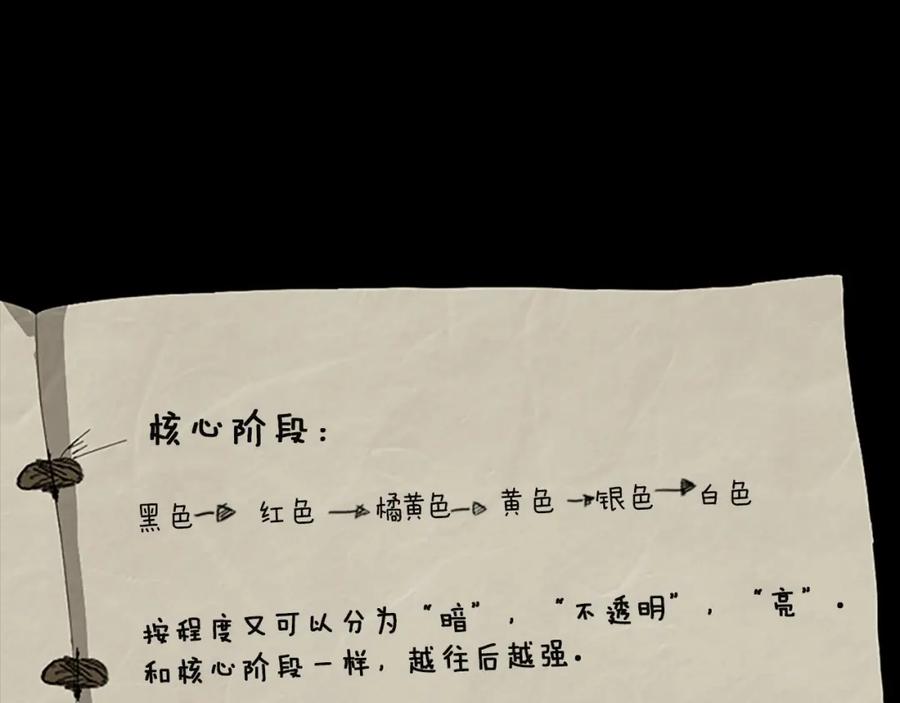 核心阶段：
黑色→ 红色 →橘黄色→ 黄色 →银色→白色
按程度又可以分为“暗”，“不透明”，“亮”.
和核心阶段一样，越往后越强.